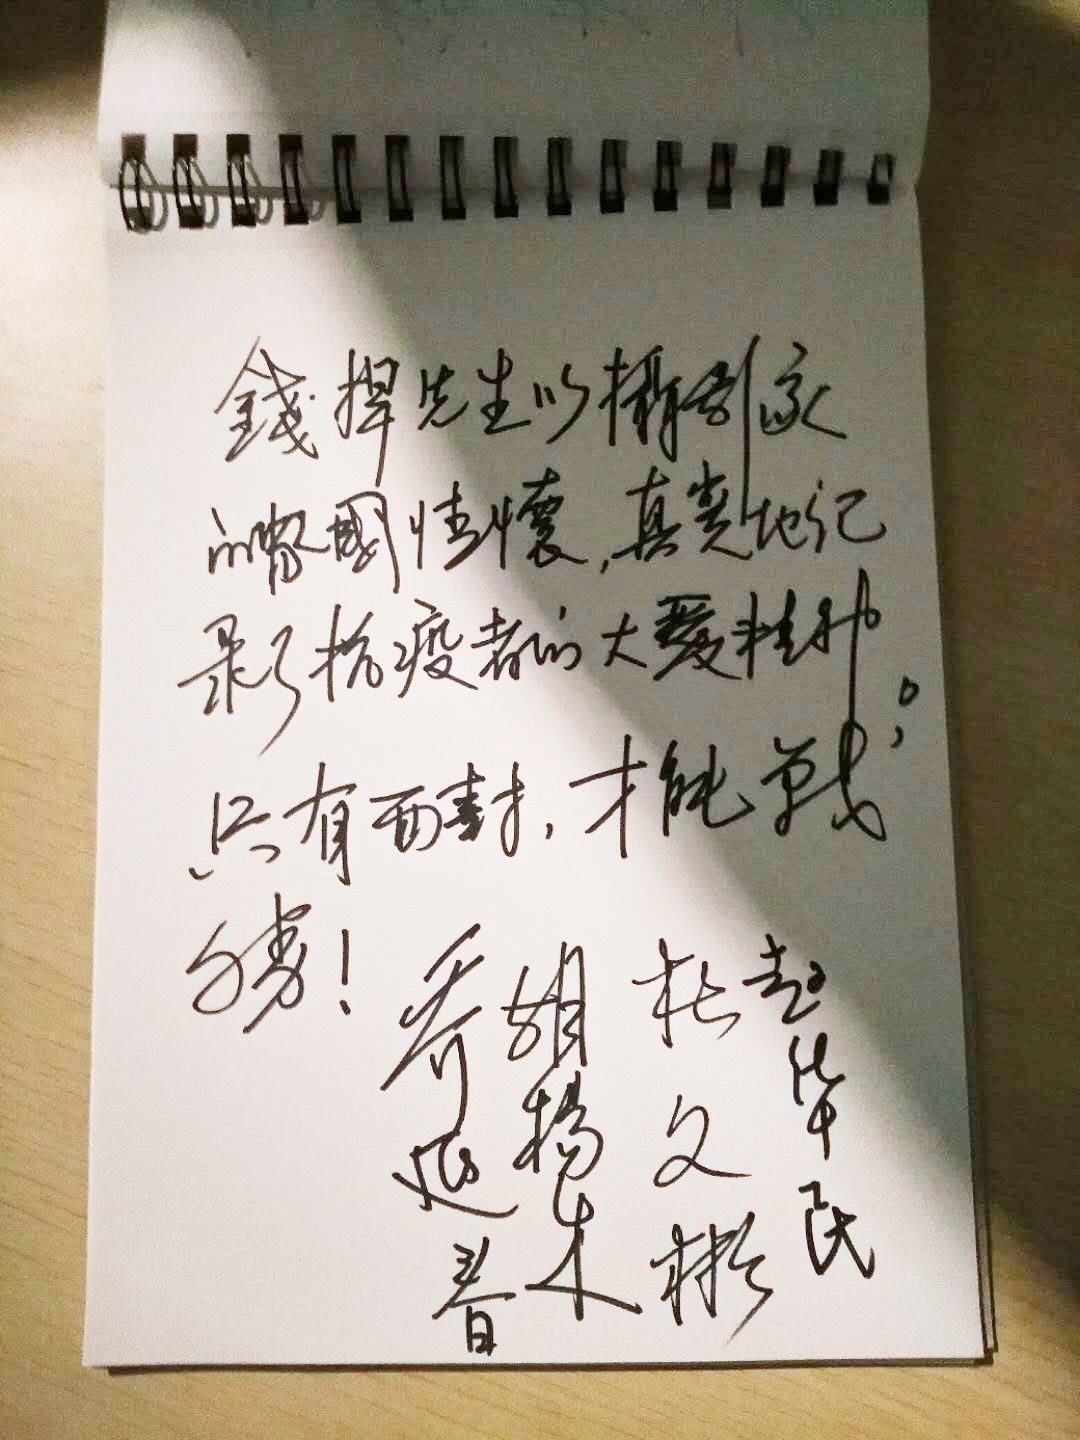 錢捍先生以攝影家
的家國情懷，真实地记
录了抗疫者的大愛精神。
只有面對，才能战
勝！
赵华民
杜文彬
胡杨木
乔延春